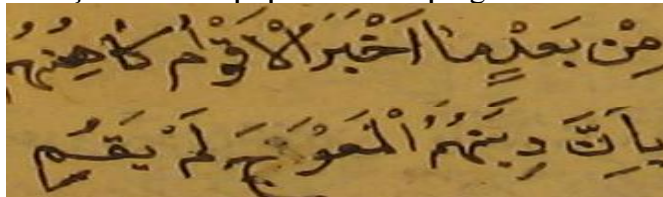 مِنْ بَعْدِ مَا اَخْبَرَ الْاَقْوَامَ كَاهِنُهُمْ
بِاَنَّ دِينَهُمُ الْمُعْوَجَّ لَمْ يَقُمِ